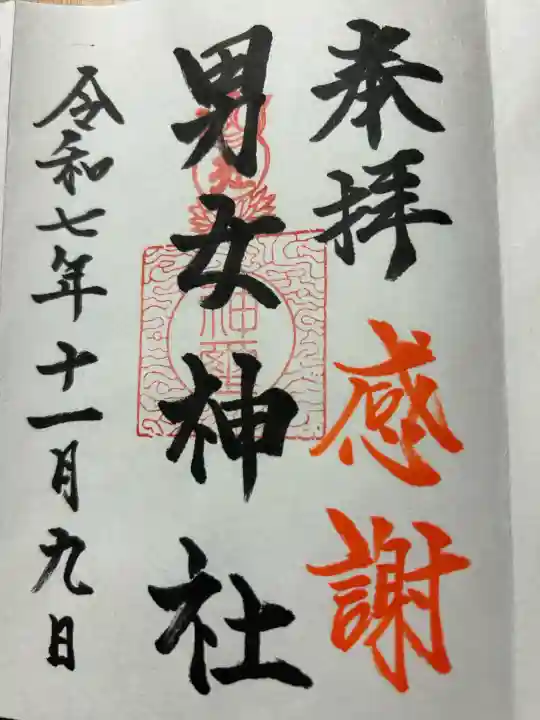 奉拝
感謝
男女神社
神璽
令和七年十一月九日